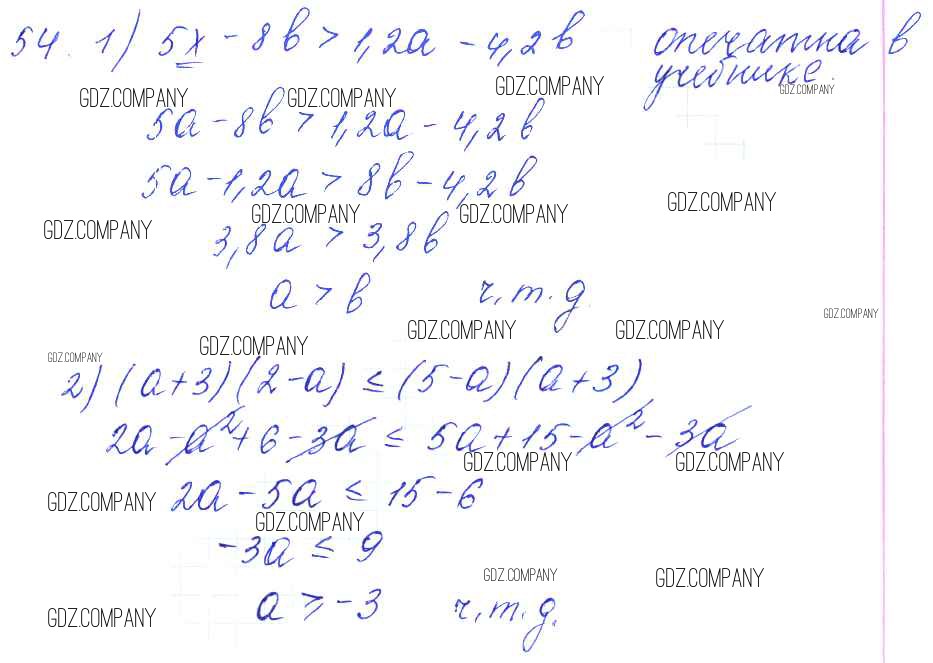 54. 1) 5x - 8b > 1,2a - 4,2b опечатка в
учебнике.
GDZ.COMPANY GDZ.COMPANY GDZ.COMPANY GDZ.COMPANY
5a - 8b > 1,2a - 4,2b
5a - 1,2a > 8b - 4,2b
GDZ.COMPANY GDZ.COMPANY GDZ.COMPANY GDZ.COMPANY
3,8a > 3,8b
a > b ч.т.д.
GDZ.COMPANY GDZ.COMPANY GDZ.COMPANY GDZ.COMPANY GDZ.COMPANY
2) (a+3)(2-a) ≤ (5-a)(a+3)
2a - a² + 6 - 3a ≤ 5a + 15 - a² - 3a
GDZ.COMPANY GDZ.COMPANY
GDZ.COMPANY 2a - 5a ≤ 15 - 6
GDZ.COMPANY
-3a ≤ 9
GDZ.COMPANY GDZ.COMPANY
GDZ.COMPANY a ≥ -3 ч.т.д.